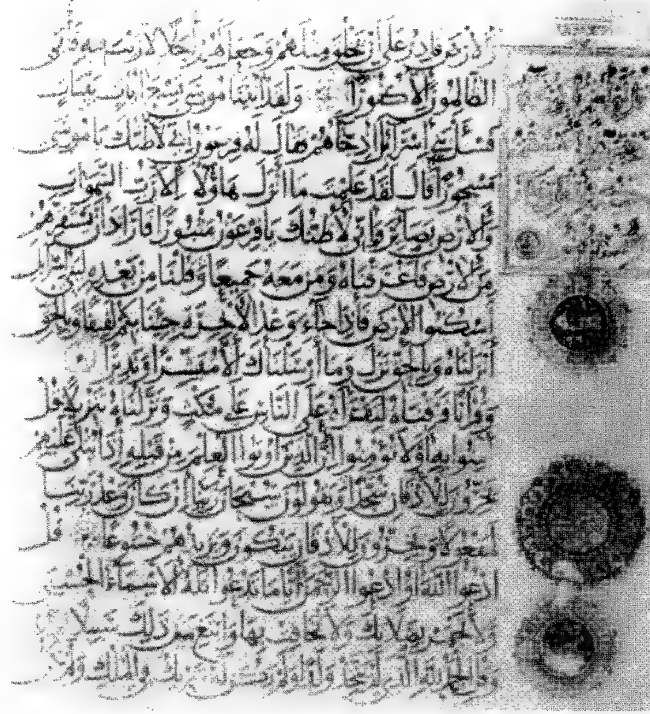 والارض قادر على ان يخلق مثلهم وجعل لهم اجلا لا ريب فيه فابى
الظالمون الا كفورا ولقد اتينا موسى تسع ايات بينات
فسئل بنى اسرائل اذ جاهم فقال له فرعون انى لاظنك يا موسى
مسحورا قال لقد علمت ما انزل هاولا الا رب السموات
والارض بصائر وانى لاظنك يا فرعون مثبورا فاراد ان يستفزهم
من الارض فاغرقناه ومن معه جميعا وقلنا من بعده لبنى اسرائل
اسكنوا الارض فاذا جاء وعد الاخرة جئنا بكم لفيفا وبالحق
انزلناه وبالحق نزل وما ارسلناك الا مبشرا ونذيرا
وقرانا فرقناه لتقراه على الناس على مكث ونزلناه تنزيلا قل
امنوا به او لا تومنوا ان الذين اوتوا العلم من قبله اذا يتلى عليهم
يخرون للاذقان سجدا ويقولون سبحان ربنا ان كان وعد ربنا
لمفعولا ويخرون للاذقان يبكون ويزيدهم خشوعا قل
ادعوا الله او ادعوا الرحمن ايا ما تدعوا فله الاسماء الحسنى
ولا تجهر بصلاتك ولا تخافت بها وابتغ بين ذلك سبيلا
وقل الحمد لله الذى لم يتخذ ولدا ولم يكن له شريك فى الملك ولم